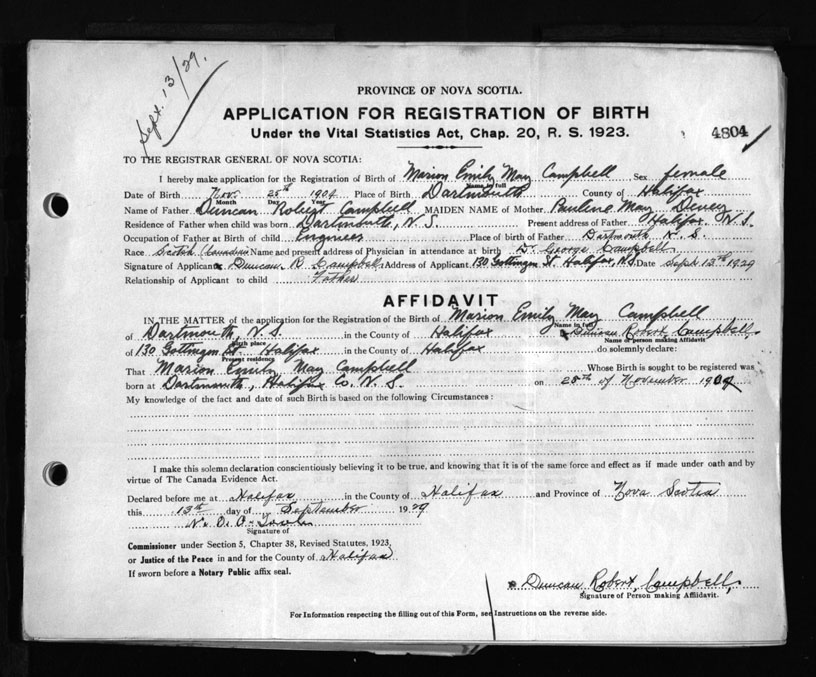 Sept. 13/29.
PROVINCE OF NOVA SCOTIA.
APPLICATION FOR REGISTRATION OF BIRTH
Under the Vital Statistics Act, Chap. 20, R. S. 1923.
4804
TO THE REGISTRAR GENERAL OF NOVA SCOTIA:
I hereby make application for the Registration of Birth of Marion Emily May Campbell Sex female
Name in full
Date of Birth Nov. 28th 1909 Place of Birth Dartmouth County of Halifax
Month Day Year
Name of Father Duncan Robert Campbell MAIDEN NAME of Mother Pauline May
Residence of Father when child was born Dartmouth, N.S. Present address of Father Halifax N.S.
Occupation of Father at Birth of child Engineer Place of birth of Father Dartmouth N.S.
Race Scotch Canadian Name and present address of Physician in attendance at birth Dr. George Campbell
Signature of Applicant x Duncan R Campbell Address of Applicant 130 Gottingen St. Halifax, N.S. Date Sept 13th 1929
Relationship of Applicant to child Father
AFFIDAVIT
IN THE MATTER of the application for the Registration of the Birth of Marion Emily May Campbell
Name in full
of Dartmouth, N.S. in the County of Halifax I Duncan Robert Campbell
Birth place Name of person making Affidavit
of 130 Gottingen St. Halifax in the County of Halifax do solemnly declare:
Present residence
That Marion Emily May Campbell Whose Birth is sought to be registered was
born at Dartmouth, Halifax Co. N.S. on 28th of November 1909
My knowledge of the fact and date of such Birth is based on the following Circumstances:
I make this solemn declaration conscientiously believing it to be true, and knowing that it is of the same force and effect as if made under oath and by
virtue of The Canada Evidence Act.
Declared before me at Halifax in the County of Halifax and Province of Nova Scotia
this 13th day of September 1929
Signature of
Commissioner under Section 5, Chapter 38, Revised Statutes, 1923,
or Justice of the Peace in and for the County of Halifax
If sworn before a Notary Public affix seal.
x Duncan Robert Campbell
Signature of Person making Affidavit.
For Information respecting the filling out of this Form, see Instructions on the reverse side.